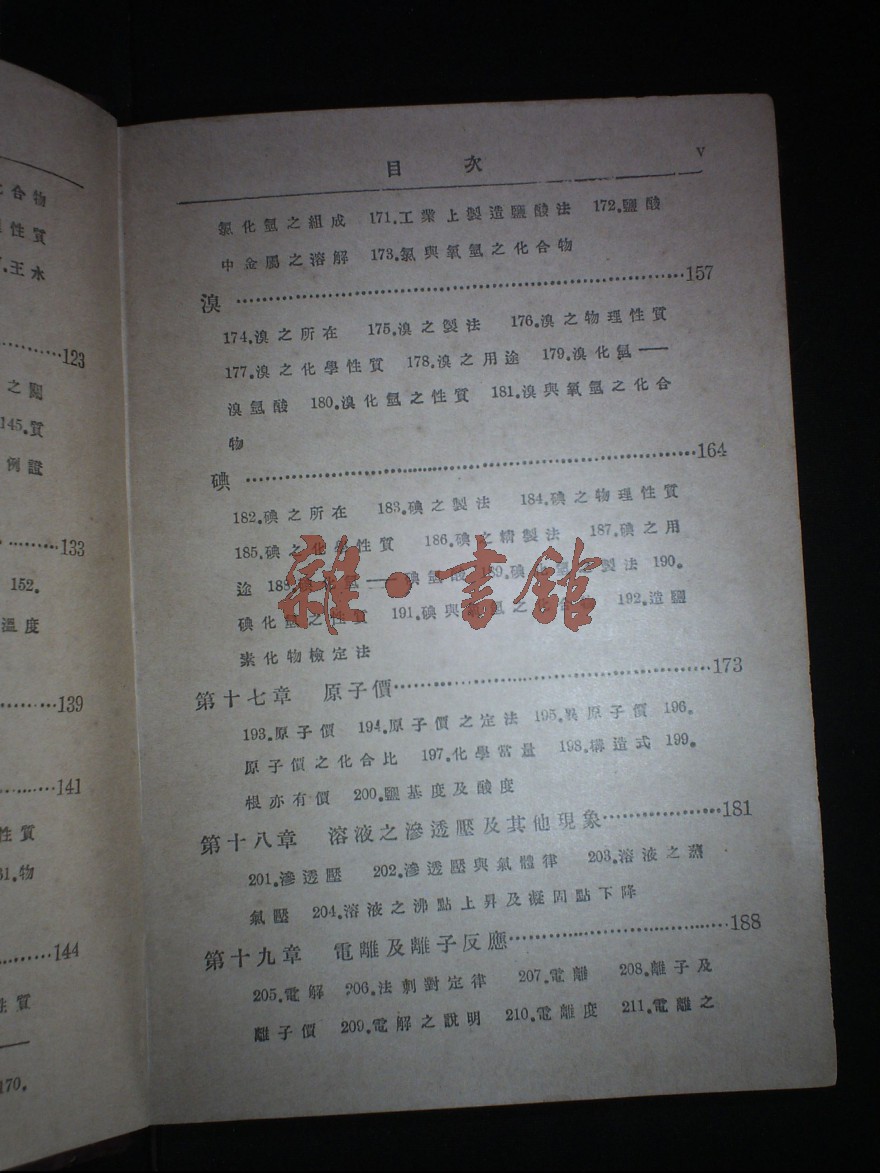 之合物
性質
王水
123
之關
145.質
例證
133
152.
溫度
139
141
性質
61.物
144
性質
170.
目 次 v
氯化氫之組成 171.工業上製造鹽酸法 172.鹽酸
中金屬之溶解 173.氯與氧氫之化合物
溴……157
174.溴之所在 175.溴之製法 176.溴之物理性質
177.溴之化學性質 178.溴之用途 179.溴化氫——
溴氫酸 180.溴化氫之性質 181.溴與氧氫之化合
物
碘……164
182.碘之所在 183.碘之製法 184.碘之物理性質
185.碘之化學性質 186.碘之精製法 187.碘之用
途 188.碘化氫——碘氫酸 189.碘化氫之製法 190.
碘化氫之性質 191.碘與 192.造鹽
素化物檢定法
第十七章 原子價……173
193.原子價 194.原子價之定法 195.異原子價 196.
原子價之化合比 197.化學當量 198.構造式 199.
根亦有價 200.鹽基度及酸度
第十八章 溶液之滲透壓及其他現象……181
201.滲透壓 202.滲透壓與氣體律 203.溶液之蒸
氣壓 204.溶液之沸點上昇及凝固點下降
第十九章 電離及離子反應……188
205.電解 206.法剌對定律 207.電離 208.離子及
離子價 209.電解之說明 210.電離度 211.電離之
雜·書館